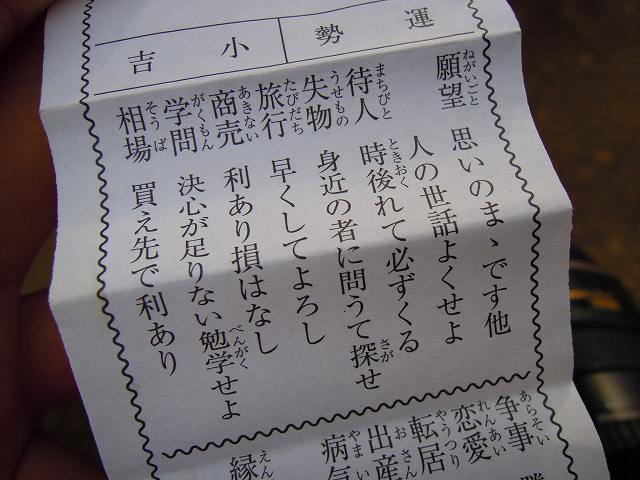 運勢
小吉
願望 思いのまゝです他
人の世話よくせよ
待人 時後れて必ずくる
失物 身近の者に問うて探せ
旅行 早くしてよろし
商売 利あり損はなし
学問 決心が足りない勉学せよ
相場 買え先で利あり
争事
恋愛
転居
出産
病気
縁